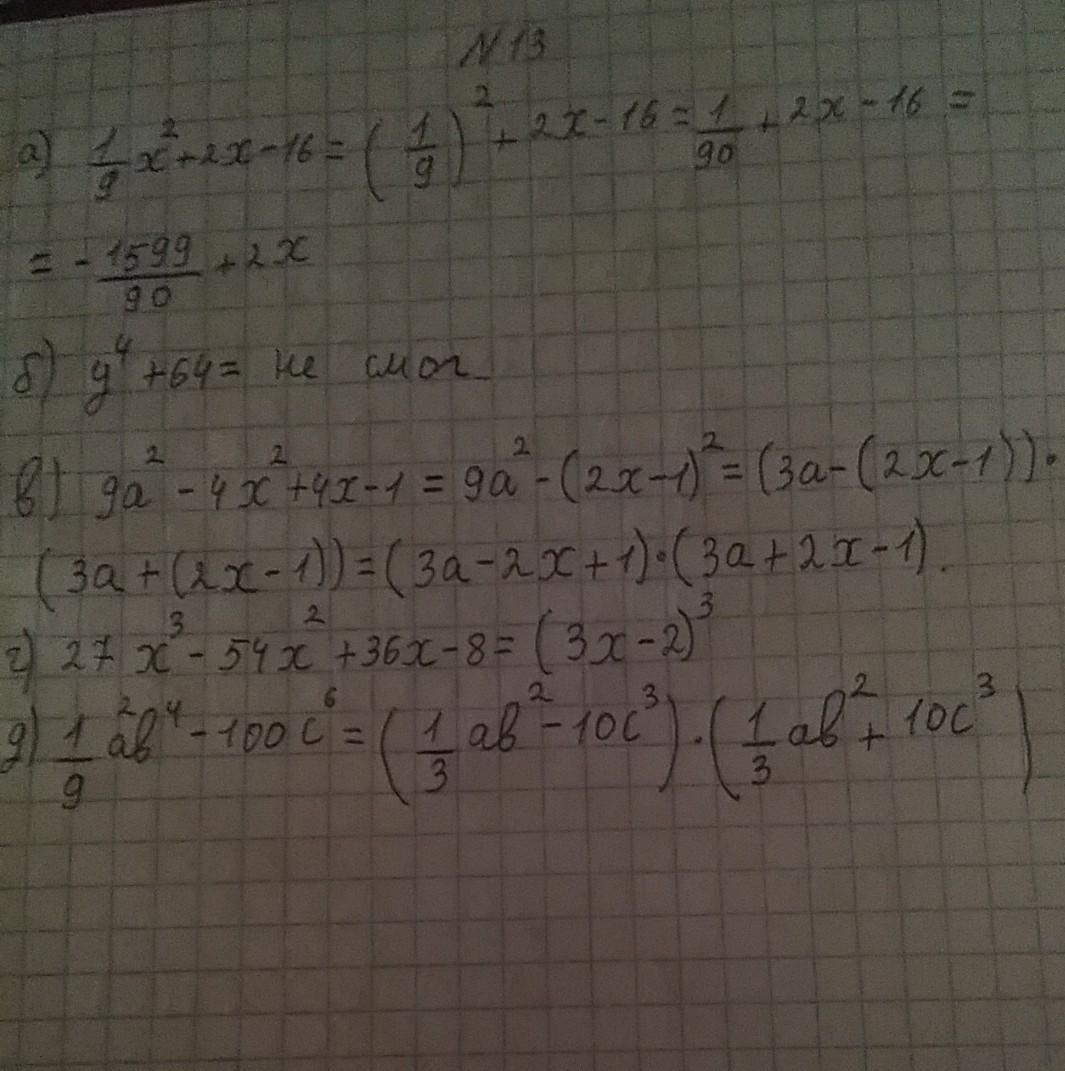 N13
а) 1/9 x² + 2x - 16 = (1/9)² + 2x - 16 = 1/90 + 2x - 16 =
= - 1599/90 + 2x
б) y⁴ + 64 = не смог
в) 9a² - 4x² + 4x - 1 = 9a² - (2x - 1)² = (3a - (2x - 1)) ·
(3a + (2x - 1)) = (3a - 2x + 1) · (3a + 2x - 1).
г) 27x³ - 54x² + 36x - 8 = (3x - 2)³
д) 1/9 a²b⁴ - 100c⁶ = (1/3 ab² - 10c³) · (1/3 ab² + 10c³)